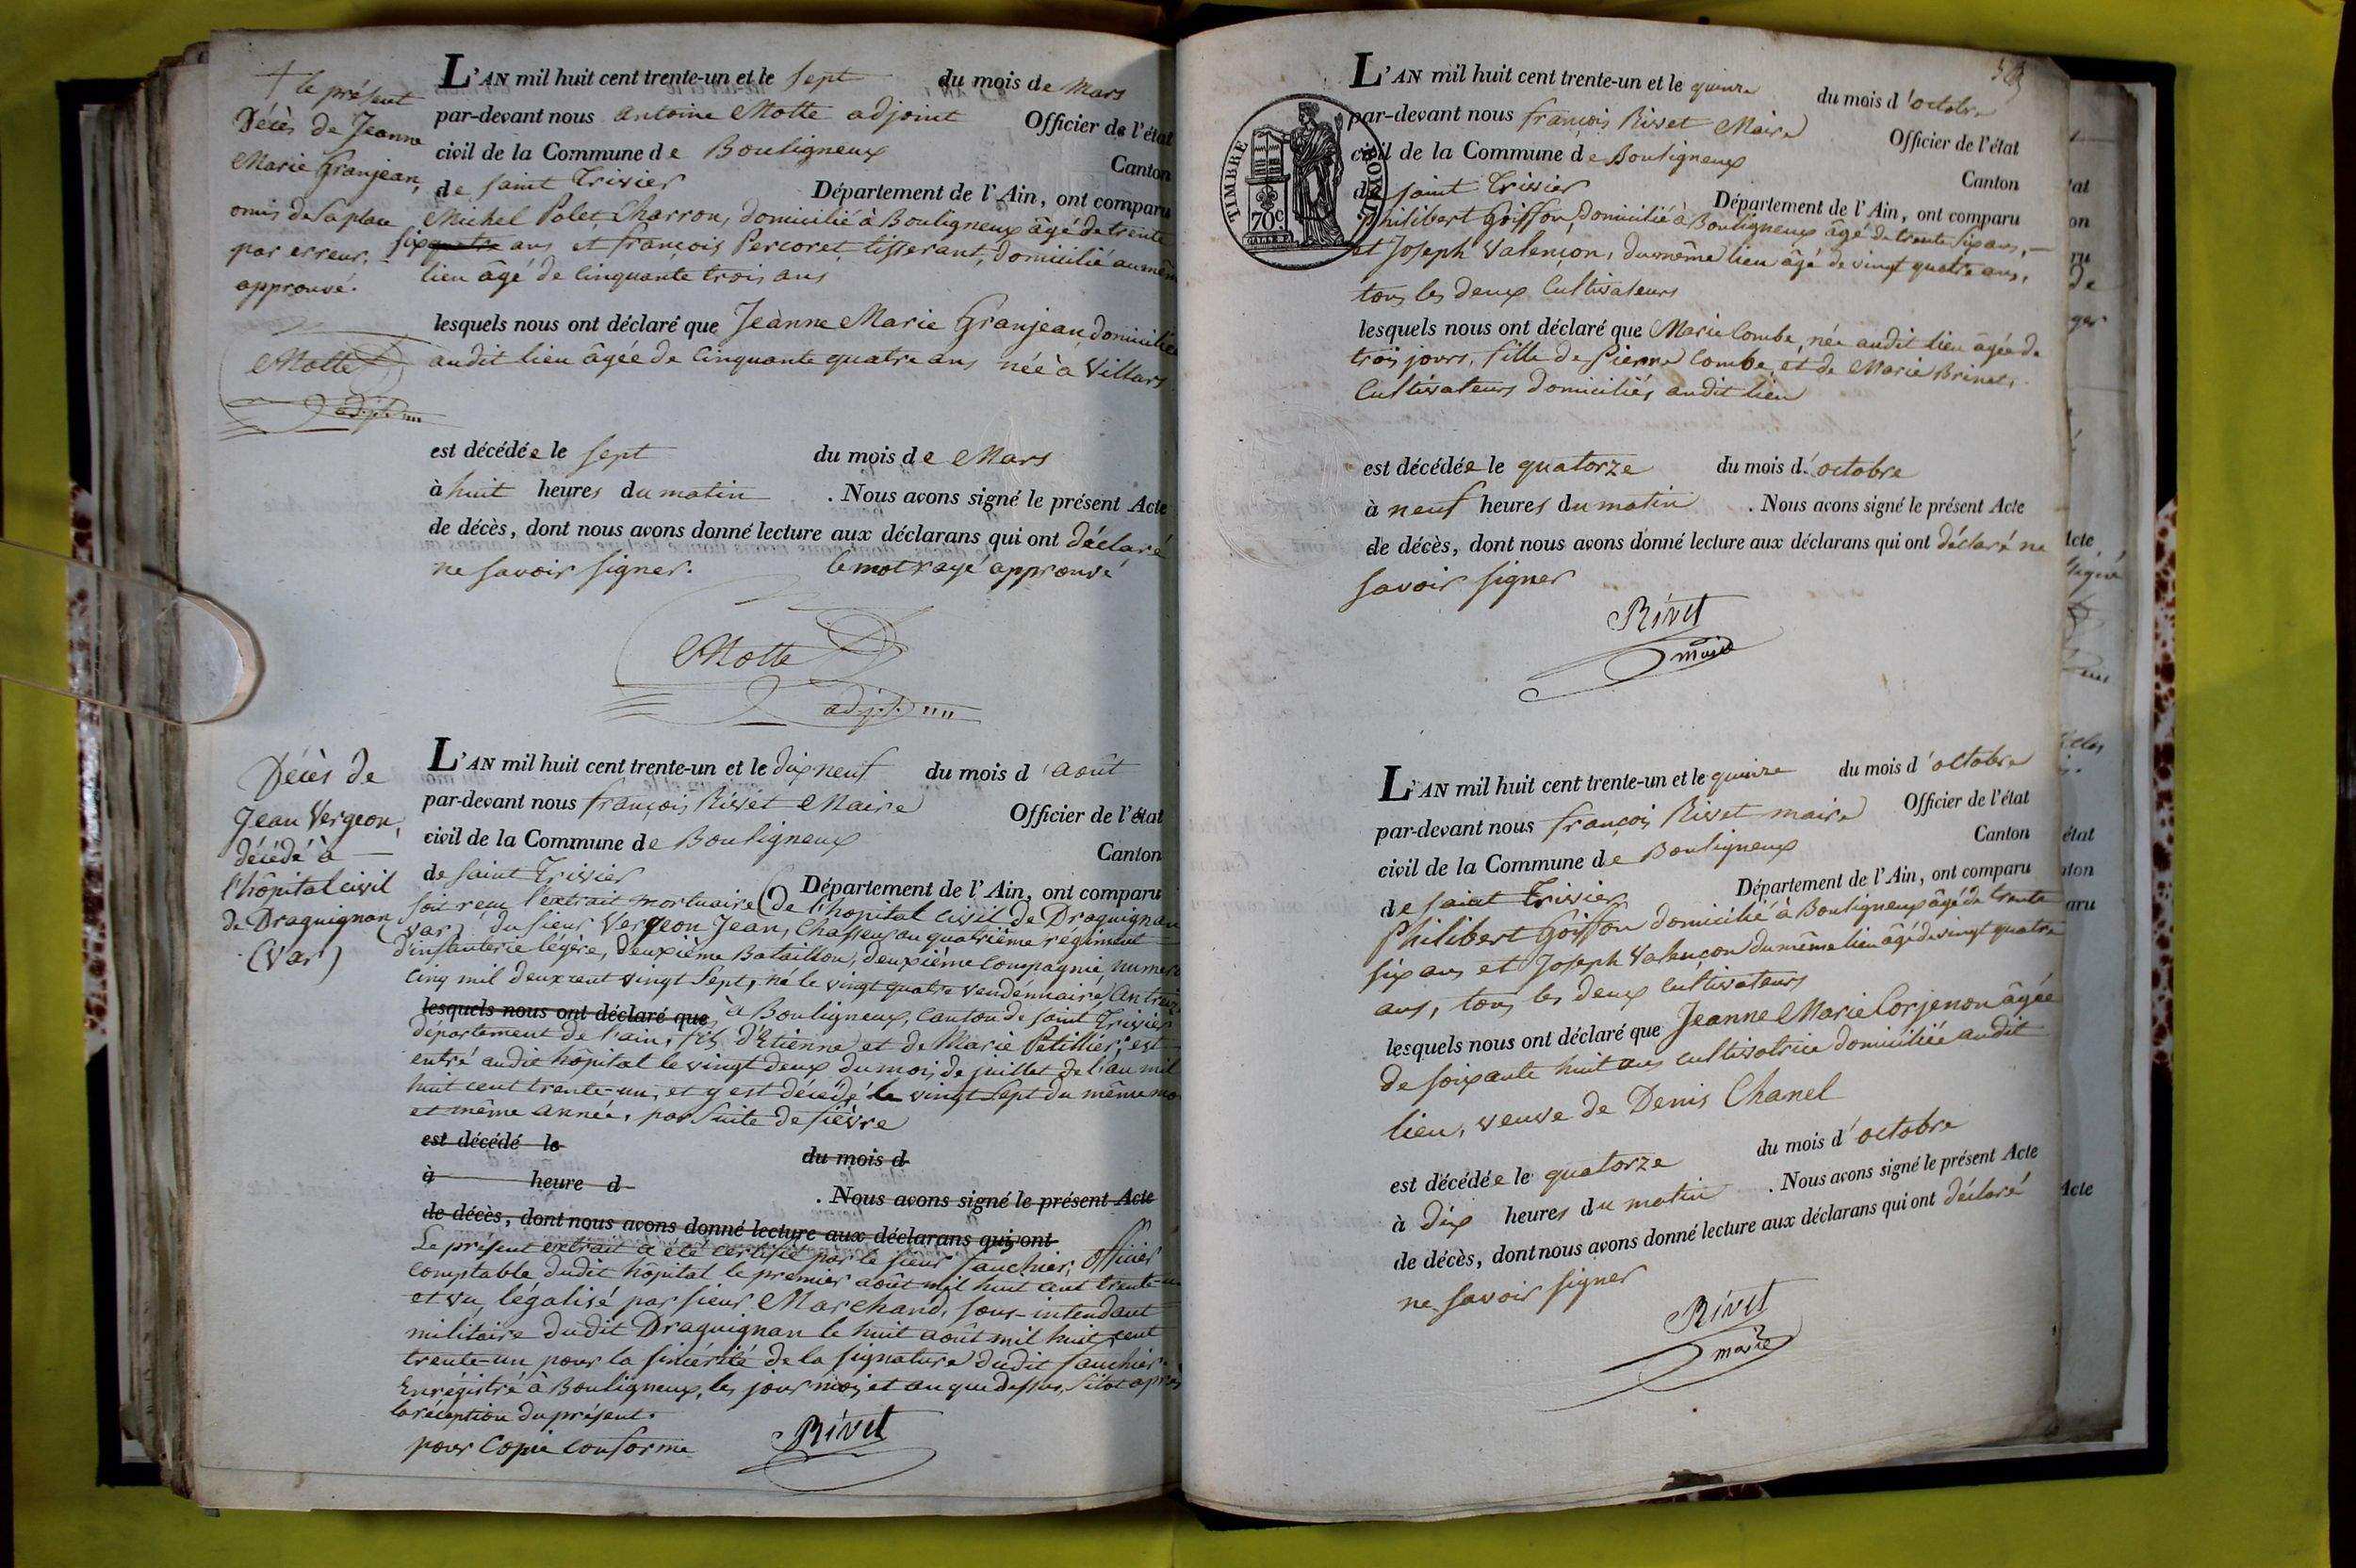 † le présent
Décès de Jeanne
Marie Granjean,
omis de sa place
par erreur.
approuvé.
Motte
adjt
L'AN mil huit cent trente-un et le sept du mois de Mars
par-devant nous antoine Motte adjoint Officier de l'état
civil de la Commune de Bouligneux Canton
de saint Trivier Département de l'Ain, ont comparu
Michel Polet Charron, domicilié à Bouligneux âgé de trente
six quatre ans et françois Percoret, tisserant, domicilié au même
lieu âgé de Cinquante trois ans
lesquels nous ont déclaré que Jeanne Marie Granjean domiciliée
audit lieu âgée de Cinquante quatre ans née à Villars
est décédée le sept du mois de Mars
à huit heures du matin . Nous avons signé le présent Acte
de décès, dont nous avons donné lecture aux déclarans qui ont déclaré
ne savoir signer. le mot rayé approuvé
Motte
adjt
Décès de
Jean Vergeon,
décédé à
l'hôpital civil
de Draguignan
(Var)
L'AN mil huit cent trente-un et le dix neuf du mois d'août
par-devant nous françois Rivet Maire Officier de l'état
civil de la Commune de Bouligneux Canton
de saint Trivier Département de l'Ain, ont comparu
soit reçu l'extrait mortuaire (De l'hopital civil de Draguignan
(Var) du sieur Vergeon Jean, Chasseur au quatrième régiment
d'infanterie légère, deuxième Bataillon, deuxième Compagnie, numéro
cinq mil deux cent vingt sept, né le vingt quatre vendémiaire an treize
lesquels nous ont déclaré que à Bouligneux, Canton de saint Trivier
département de l'ain, fils d'Etienne et de Marie Petillier; est
entré audit hôpital le vingt deux du mois de juillet de l'an mil
huit cent trente-un, et y est décédé le vingt sept du même mois
et même année, par suite de fièvre
est décédé le du mois d
à heure d . Nous avons signé le présent Acte
de décès, dont nous avons donné lecture aux déclarans qui ont
Le présent extrait a été certifié par le sieur Fauchier, officier
comptable dudit hôpital le premier août mil huit cent trente-un
et vu légalisé par sieur Marchand, sous-intendant
militaire dudit Draguignan le huit août mil huit cent
trente-un pour la sincérité de la signature dudit Fauchier.
Enrégistré à Bouligneux, les jour mois et an que dessus, sitot après
la réception du présent.
pour Copie conforme Rivet
TIMBRE ROYAL
70c
L'AN mil huit cent trente-un et le quinze du mois d'octobre
par-devant nous françois Rivet Maire Officier de l'état
civil de la Commune de Bouligneux Canton
de saint Trivier Département de l'Ain, ont comparu
Philibert Goiffon, domicilié à Bouligneux âgé de trente six ans,
et Joseph Valençon, du même lieu âgé de vingt quatre ans,
tous les deux Cultivateurs
lesquels nous ont déclaré que Marie Combe, née audit lieu âgée de
trois jours, fille de Pierre Combe, et de Marie Brinet,
Cultivateurs domiciliés audit lieu
est décédée le quatorze du mois d'octobre
à neuf heures du matin . Nous avons signé le présent Acte
de décès, dont nous avons donné lecture aux déclarans qui ont déclaré ne
savoir signer
Rivet
maire
L'AN mil huit cent trente-un et le quinze du mois d'octobre
par-devant nous françois Rivet maire Officier de l'état
civil de la Commune de Bouligneux Canton
de saint Trivier Département de l'Ain, ont comparu
Philibert Goiffon domicilié à Bouligneux âgé de trente
six ans et Joseph Valençon du même lieu âgé de vingt quatre
ans, tous les deux Cultivateurs
lesquels nous ont déclaré que Jeanne Marie Corjenon âgée
de soixante huit ans cultivatrice domiciliée audit
lieu, veuve de Denis Chanel
est décédée le quatorze du mois d'octobre
à dix heures du matin . Nous avons signé le présent Acte
de décès, dont nous avons donné lecture aux déclarans qui ont déclaré
ne savoir signer
Rivet
maire